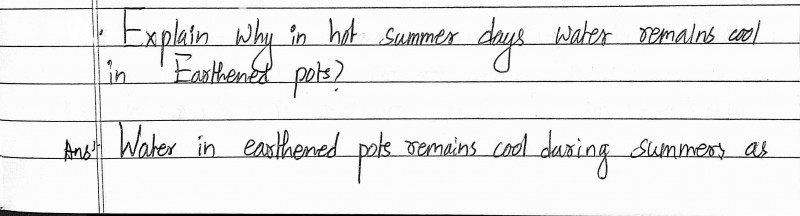 Explain Why in hot summer days Water remains cool
in Earthened pots?
Ans:- Water in earthened pots remains cool during summers as